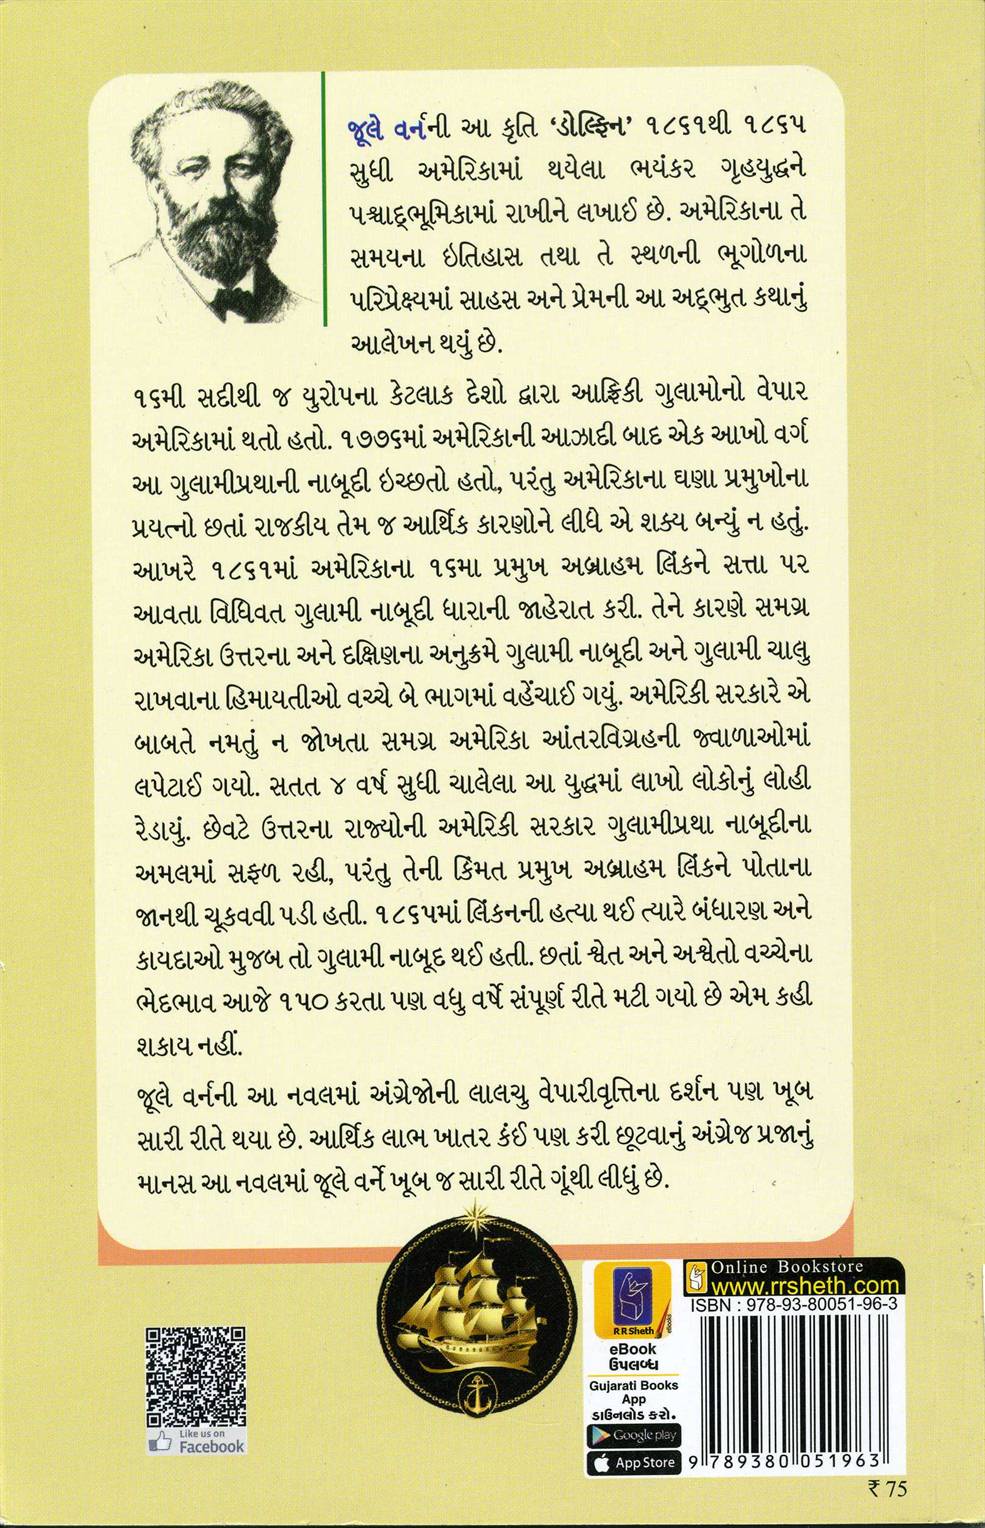 જૂલે વર્નની આ કૃતિ ‘ડોલ્ફિન’ ૧૮૬૧થી ૧૮૬૫
સુધી અમેરિકામાં થયેલા ભયંકર ગૃહયુદ્ધને
પશ્ચાદ્ભૂમિકામાં રાખીને લખાઈ છે. અમેરિકાના તે
સમયના ઇતિહાસ તથા તે સ્થળની ભૂગોળના
પરિપ્રેક્ષ્યમાં સાહસ અને પ્રેમની આ અદ્ભુત કથાનું
આલેખન થયું છે.
૧૬મી સદીથી જ યુરોપના કેટલાક દેશો દ્વારા આફ્રિકી ગુલામોનો વેપાર
અમેરિકામાં થતો હતો. ૧૭૭૬માં અમેરિકાની આઝાદી બાદ એક આખો વર્ગ
આ ગુલામીપ્રથાની નાબૂદી ઇચ્છતો હતો, પરંતુ અમેરિકાના ઘણા પ્રમુખોના
પ્રયત્નો છતાં રાજકીય તેમ જ આર્થિક કારણોને લીધે એ શક્ય બન્યું ન હતું.
આખરે ૧૮૬૧માં અમેરિકાના ૧૬મા પ્રમુખ અબ્રાહમ લિંકને સત્તા પર
આવતા વિધિવત ગુલામી નાબૂદી ધારાની જાહેરાત કરી. તેને કારણે સમગ્ર
અમેરિકા ઉત્તરના અને દક્ષિણના અનુક્રમે ગુલામી નાબૂદી અને ગુલામી ચાલુ
રાખવાના હિમાયતીઓ વચ્ચે બે ભાગમાં વહેંચાઈ ગયું. અમેરિકી સરકારે એ
બાબતે નમતું ન જોખતા સમગ્ર અમેરિકા આંતરવિગ્રહની જ્વાળાઓમાં
લપેટાઈ ગયો. સતત ૪ વર્ષ સુધી ચાલેલા આ યુદ્ધમાં લાખો લોકોનું લોહી
રેડાયું. છેવટે ઉત્તરના રાજ્યોની અમેરિકી સરકાર ગુલામીપ્રથા નાબૂદીના
અમલમાં સફળ રહી, પરંતુ તેની કિંમત પ્રમુખ અબ્રાહમ લિંકને પોતાના
જાનથી ચૂકવવી પડી હતી. ૧૮૬૫માં લિંકનની હત્યા થઈ ત્યારે બંધારણ અને
કાયદાઓ મુજબ તો ગુલામી નાબૂદ થઈ હતી. છતાં શ્વેત અને અશ્વેતો વચ્ચેના
ભેદભાવ આજે ૧૫૦ કરતા પણ વધુ વર્ષે સંપૂર્ણ રીતે મટી ગયો છે એમ કહી
શકાય નહીં.
જૂલે વર્નની આ નવલમાં અંગ્રેજોની લાલચુ વેપારીવૃત્તિના દર્શન પણ ખૂબ
સારી રીતે થયા છે. આર્થિક લાભ ખાતર કંઈ પણ કરી છૂટવાનું અંગ્રેજ પ્રજાનું
માનસ આ નવલમાં જૂલે વર્ને ખૂબ જ સારી રીતે ગૂંથી લીધું છે.
Like us on
Facebook
R R Sheth
ebooks
eBook
ઉપલબ્ધ
Gujarati Books
App
ડાઉનલોડ કરો.
Google play
App Store
Online Bookstore
www.rrsheth.com
ISBN : 978-93-80051-96-3
9 789380 051963
₹ 75